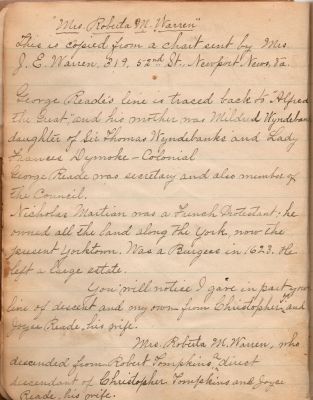 "Mrs. Roberta M. Warren"
This is copied from a chart sent by Mrs
J. E. Warren, 319, 52nd St. Newport News, Va.
George Reade's line is traced back to "Alfred
the Great" and his mother was Mildred Wyndeban
daughter of Sir Thomas Wyndebanks and Lady
Frances Dymoke - Colonial
George Reade was secretary and also member of
the Council.
Nicholas Martian was a French Protestant; he
owned all the land along the York, now the
present Yorktown. Was a Burgess in 1623. He
left a large estate.
You will notice I gave in part your
line of descent and my own - from Christopher and
Joyce Reade, his wife.
Mrs. Roberta M. Warren, who
descended from Robert Tompkins a direct
descendant of Christopher Tompkins and Joyce
Reade, his wife.